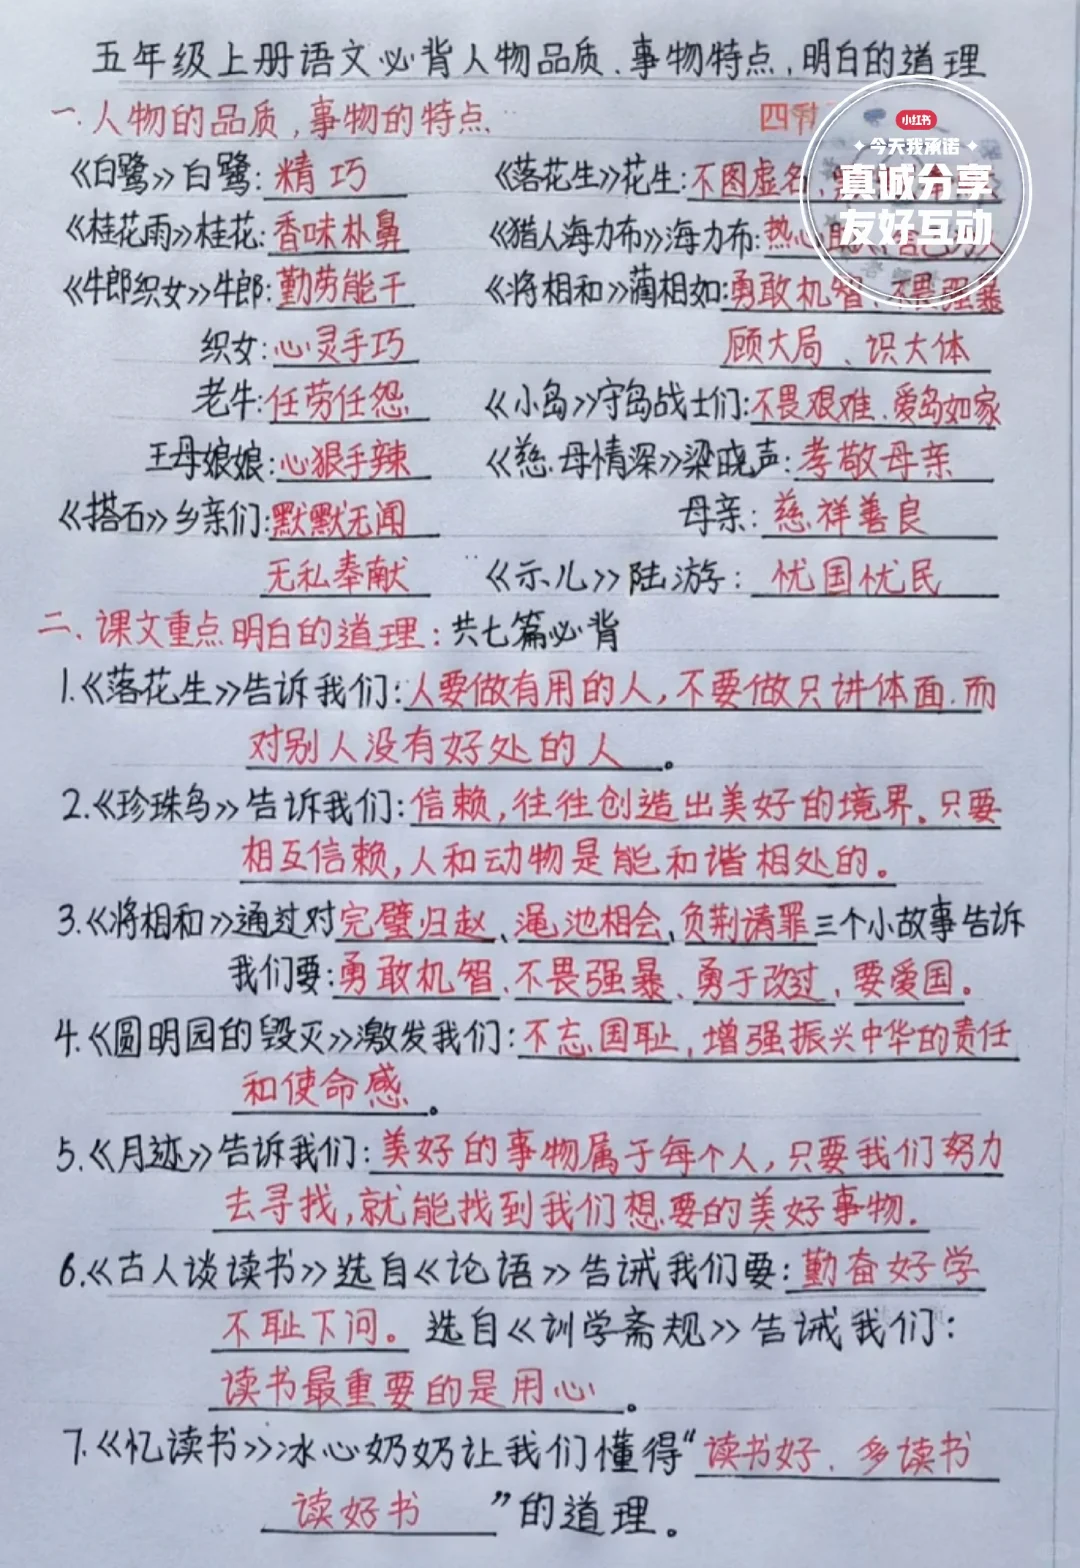 五年级上册语文必背人物品质、事物特点，明白的道理
一、人物的品质，事物的特点
小红书
今天我承诺
真诚分享
友好互动
《白鹭》白鹭：精巧
《落花生》花生：不图虚名，
《桂花雨》桂花：香味朴鼻
《猎人海力布》海力布：热心
《牛郎织女》牛郎：勤劳能干
《将相和》蔺相如：勇敢机智、不畏强暴
织女：心灵手巧
顾大局、识大体
老牛：任劳任怨
《小岛》守岛战士们：不畏艰难、爱岛如家
王母娘娘：心狠手辣
《慈母情深》梁晓声：孝敬母亲
《搭石》乡亲们：默默无闻
母亲：慈祥善良
无私奉献
《示儿》陆游：忧国忧民
二、课文重点明白的道理：共七篇必背
1.《落花生》告诉我们：人要做有用的人，不要做只讲体面，而
对别人没有好处的人。
2.《珍珠鸟》告诉我们：信赖，往往创造出美好的境界。只要
相互信赖，人和动物是能和谐相处的。
3.《将相和》通过对完璧归赵、渑池相会、负荆请罪三个小故事告诉
我们要：勇敢机智、不畏强暴、勇于改过，要爱国。
4.《圆明园的毁灭》激发我们：不忘国耻，增强振兴中华的责任
和使命感。
5.《月迹》告诉我们：美好的事物属于每个人，只要我们努力
去寻找，就能找到我们想要的美好事物.
6.《古人谈读书》选自《论语》告诫我们要：勤奋好学
不耻下问。选自《训学斋规》告诫我们：
读书最重要的是用心。
7.《忆读书》》冰心奶奶让我们懂得“读书好、多读书
读好书”的道理。